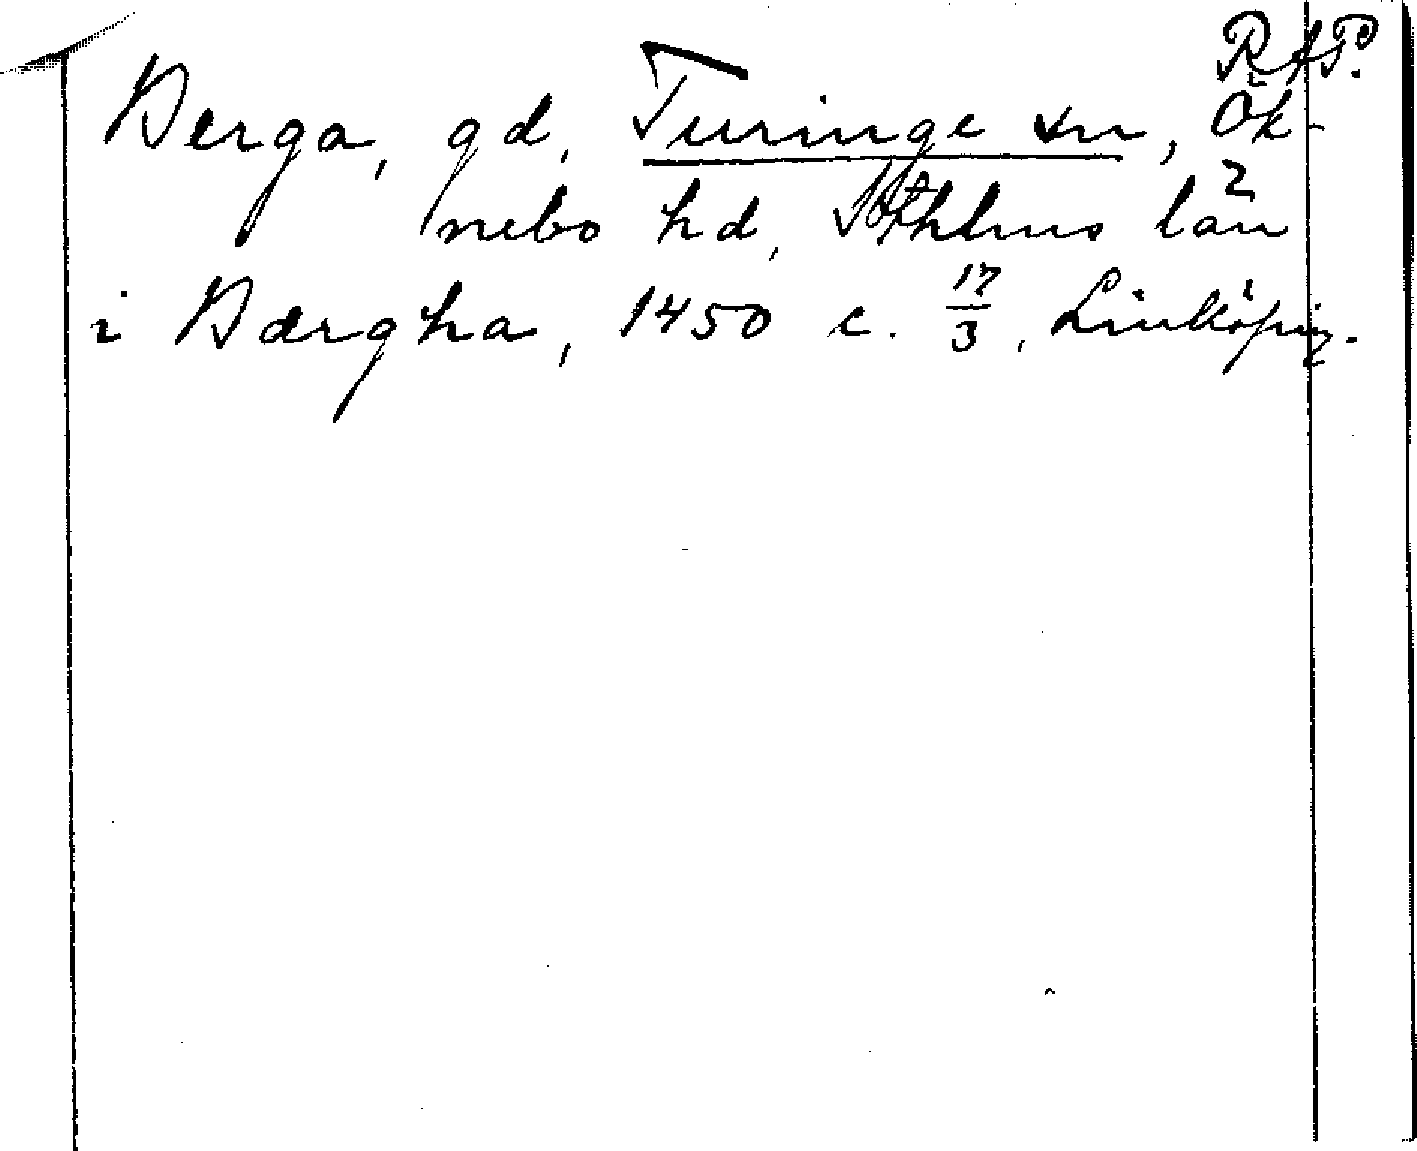 RAP.
Berga, gd, Turinge sn, Ök-
nebo hd, Sthlms län
i Bærgha, 1450 c. 17/3, Linköping.